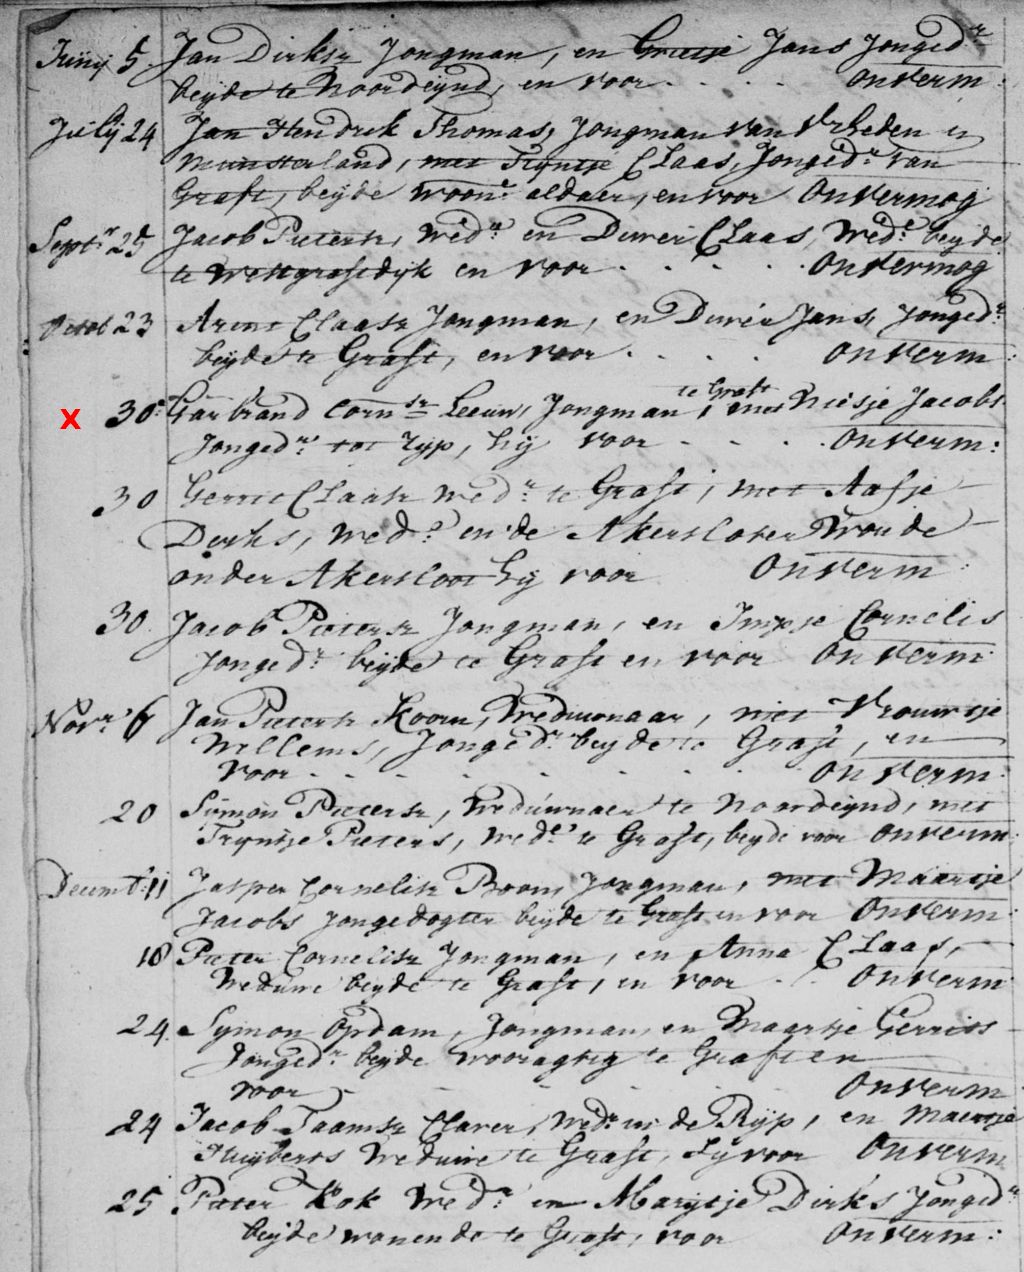 Junij 5. Jan Dirksz Jongman, en Grietje Jans Jongedr
beyde te Noordeynd, en voor . . . . onverm:
Julij 24 Jan Hendrik Thomas, Jongman van Vrheden in
Munsterland, met Tryntje Claas, Jongedr van
Graft, beyde woone aldaer, en voor Onvermog
Septr 25 Jacob Pietersz, Wedr en Duwei Claas, Wede beyde
te Westgraftdyk en voor . . . . Onvermog
Octob 23 Arent Claasz Jongman, en Duwei Jans, Jongedr
beyde te Graft, en voor . . . . onverm:
x 30: Garbrand Cornsz Leeuw, Jongman te Graft, met Niesje Jacobs
Jongedr tot Ryp, hy voor . . . . onverm:
30 Gerrit Claasz Wedr te Graft, met Aafje
Dirks, Wede en de Akersloter Woude
onder Akersloot hy voor Onverm:
30. Jacob Pietersz Jongman, en Impje Cornelis
Jongedr beyde te Graft en voor Onverm:
Novr 6 Jan Pietersz Koorn, Weduwnaar, met Vrouwtje
Willems, Jongedr beyde te Graft, en
voor . . . . . . . Onverm:
20 Symon Pietersz, Weduwnaer te Noordeynd, met
Tryntje Pieters, Wede te Graft, beyde voor onverm:
Decemb: 11 Jasper Cornelisz Boon, Jongman, met Maartje
Jacobs Jongedogter beyde te Graft en voor Onverm:
18 Pieter Cornelisz Jongman, en Anna Claas,
Weduwe beyde te Graft, en voor . . Onverm
24. Symon Opdam, Jongman, en Maartje Gerrits
Jongedr beyde te Graft en
voor . . . . . Onverm
24 Jacob Taamsz Claver, Wedr in de Ryp, en Maertje
Huyberts Weduwe te Graft, Sy voor Onverm
25 Pieter Kok Wedr en Marytje Dirks Jongedr
beyde wonende te Graft, voor Onverm: